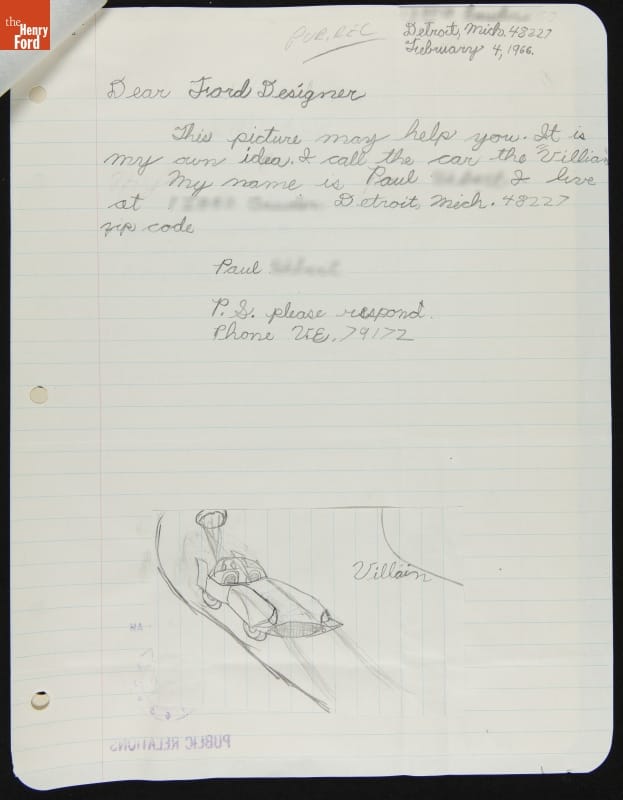 the
Henry
Ford
PUB. REL
Detroit, Mich. 48227
February 4, 1966.
Dear Ford Designer
This picture may help you. It is
my own idea. I call the car the Villian
My name is Paul I live
at Detroit, Mich. 48227
zip code
Paul
P.S. please respond.
Phone VE. 79172
Villain
PUBLIC RELATIONS